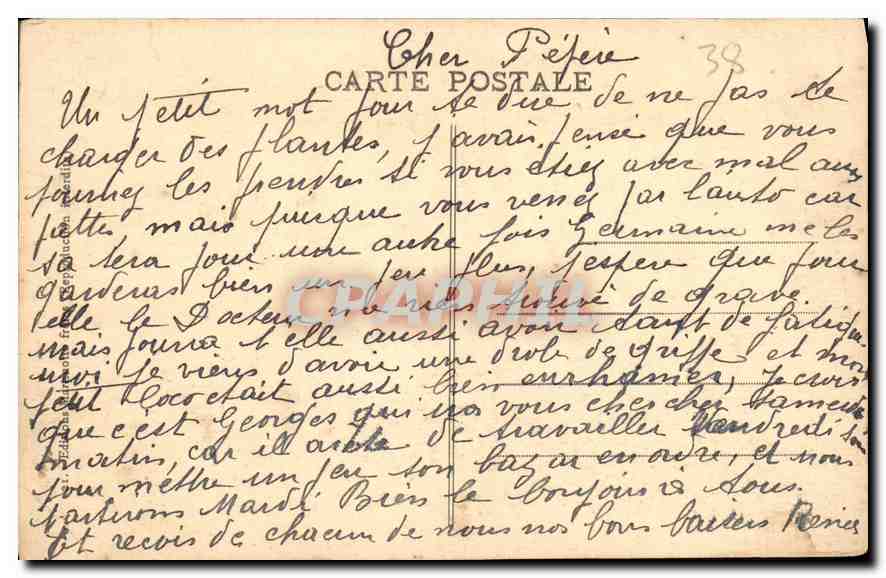 Cher Pépère
38
CARTE POSTALE
Un petit mot pour te dire de ne pas te
charger des plantes, j avais pensé que vous
pourriez les prendre si vous étiez avec mal aux
pattes, mais puisque vous venez par l'auto car
sa sera pour une autre fois Germaine me les
garderas bien un peu plus, j espere que pour
elle le Docteur na rien trouvé de grave
mais pourra t elle aussi avoir tant de fatigue
moi je viens d'avoir une drole de griffe et mon
petit Coco était aussi bien enrhumer, je crois
que c'est Georges qui ira vous chercher Samedi
matin, car il arete de travailler Vendredi soir
pour mettre un peu son bazar en ordre, et nous
partirons Mardi Bien le bonjour à tous.
Et recois de chacun de nous nos bons baisers Renée
CPAPHIL
Editions frères (Reproduction interdite)